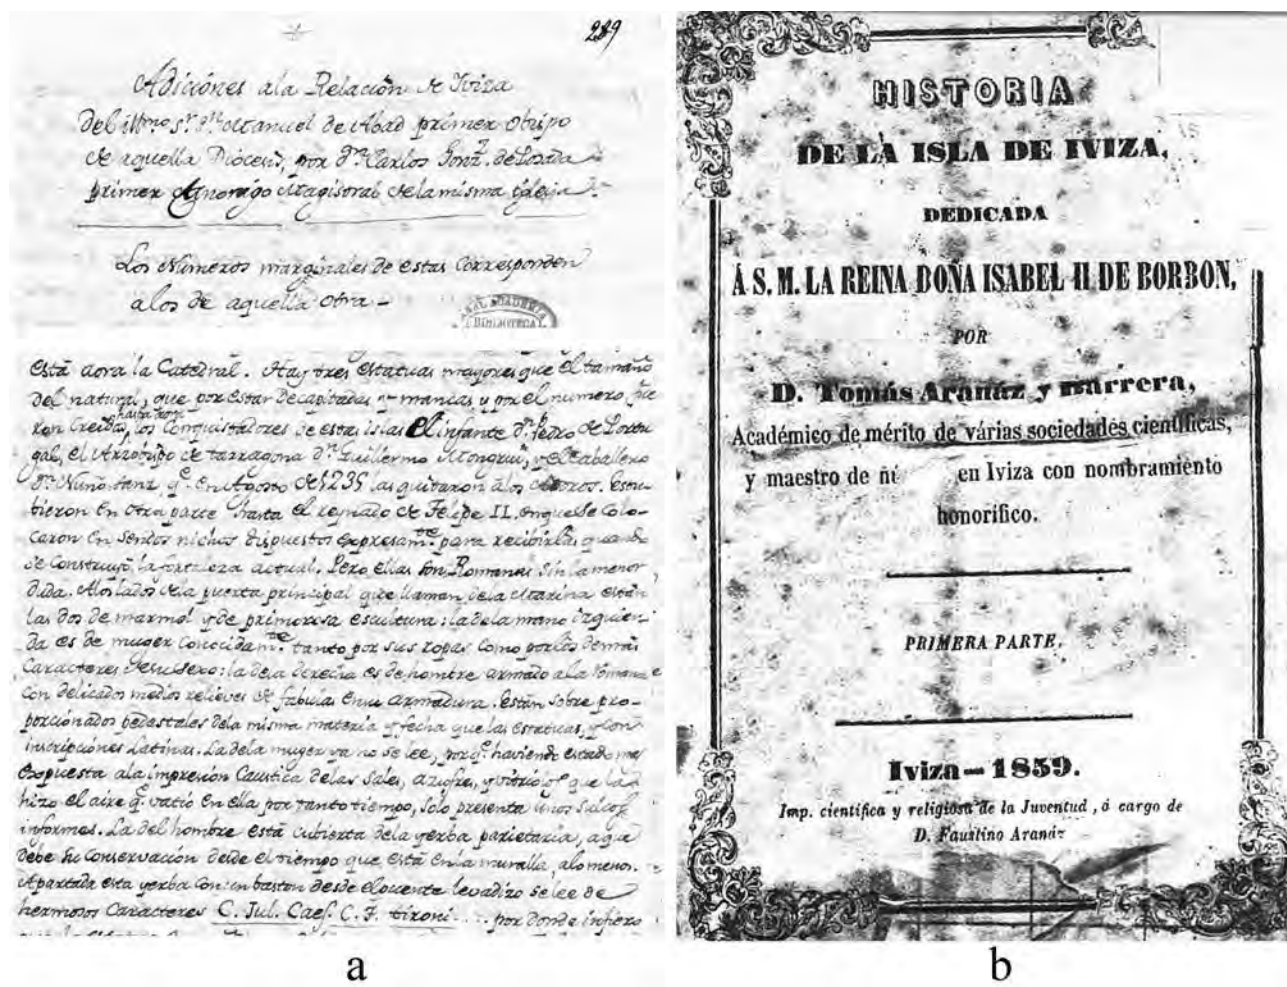 289
Adiciónes a la Relación de Iviza
Del Illmo. Sr. Dn. Manuel de Abad primer Obispo
de aquella Diocesis, por Dn. Carlos Gonz. de Posada
primer Canonigo Magistral de la misma Iglesia.
Los Números marginales de estas corresponden
a los de aquella otra
REAL ACADEMIA
BIBLIOTECA
está aora la Catedral. Hay tres estatuas mayores que el tamaño
del natural, que por estar decapitadas y mancas y por el numero, fue
ron creidas hasta aqui los Conquistadores de estas islas el infante Dn. Pedro de Portu
gal, el Arzobispo de tarragona Dn. Guillermo Mongrui, y el Caballero
Dn. Nuño Sanz, qe. en Agosto de 1235 las quitaron a los Moros. Estu-
bieron en otra parte hasta el reynado de Felipe II. en que se colo-
caron en sendos nichos dispuestos expresamte. para recibirlas quando
se construyó la fortaleza actual. Pero ellas son Romanas sin la menor
duda. A los lados de la puerta principal que llaman de la Marina están
las dos de marmol y de primorosa escultura: la de la mano izquier-
da es de muger conocidamte. tanto por sus ropas como por los demas
Caracteres de su sexo: la de la derecha es de hombre armado a la romana
con delicados medios relieves de fabula en su armadura. están sobre pro-
porcionados pedestales de la misma materia y fecha que las estatuas, y con
inscripciones Latinas. La de la muger ya no se lee, por qe. haviendo estado mas
expuesta a la impresión Caustica de las Sales, azufre, y vitriolo que la
hizo el aire qe. vatió en ella por tanto tiempo, solo presenta unos Sulcos
informes. La del hombre está cubierta de la yerba parietaria, a que
debe su Conservación desde el tiempo que está en la muralla, a lo menos.
Apartada esta yerba con un baston desde el puente levadizo se lee de
hermosos Caracteres C. Jul. Caes. C. F. tironi.... por donde infiero
a
HISTORIA
DE LA ISLA DE IVIZA,
DEDICADA
Á S. M. LA REINA DOÑA ISABEL II DE BORBON,
POR
D. Tomás Aranáz y Barrera,
Académico de mérito de várias sociedades científicas,
y maestro de ñi en Iviza con nombramiento
honorífico.
PRIMERA PARTE.
Iviza—1859.
Imp. científica y religiosa de la Juventud, á cargo de
D. Faustino Aranáz
b